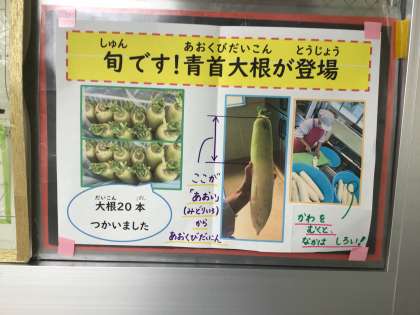 しゅん あおくびだいこん とうじょう
旬です!青首大根が登場
だいこん ぽん
大根20本
つかいました
ここが
「あおい」
(みどりいろ)
から
あおくびだいこん
かわを
むくと、
なかは しろい!